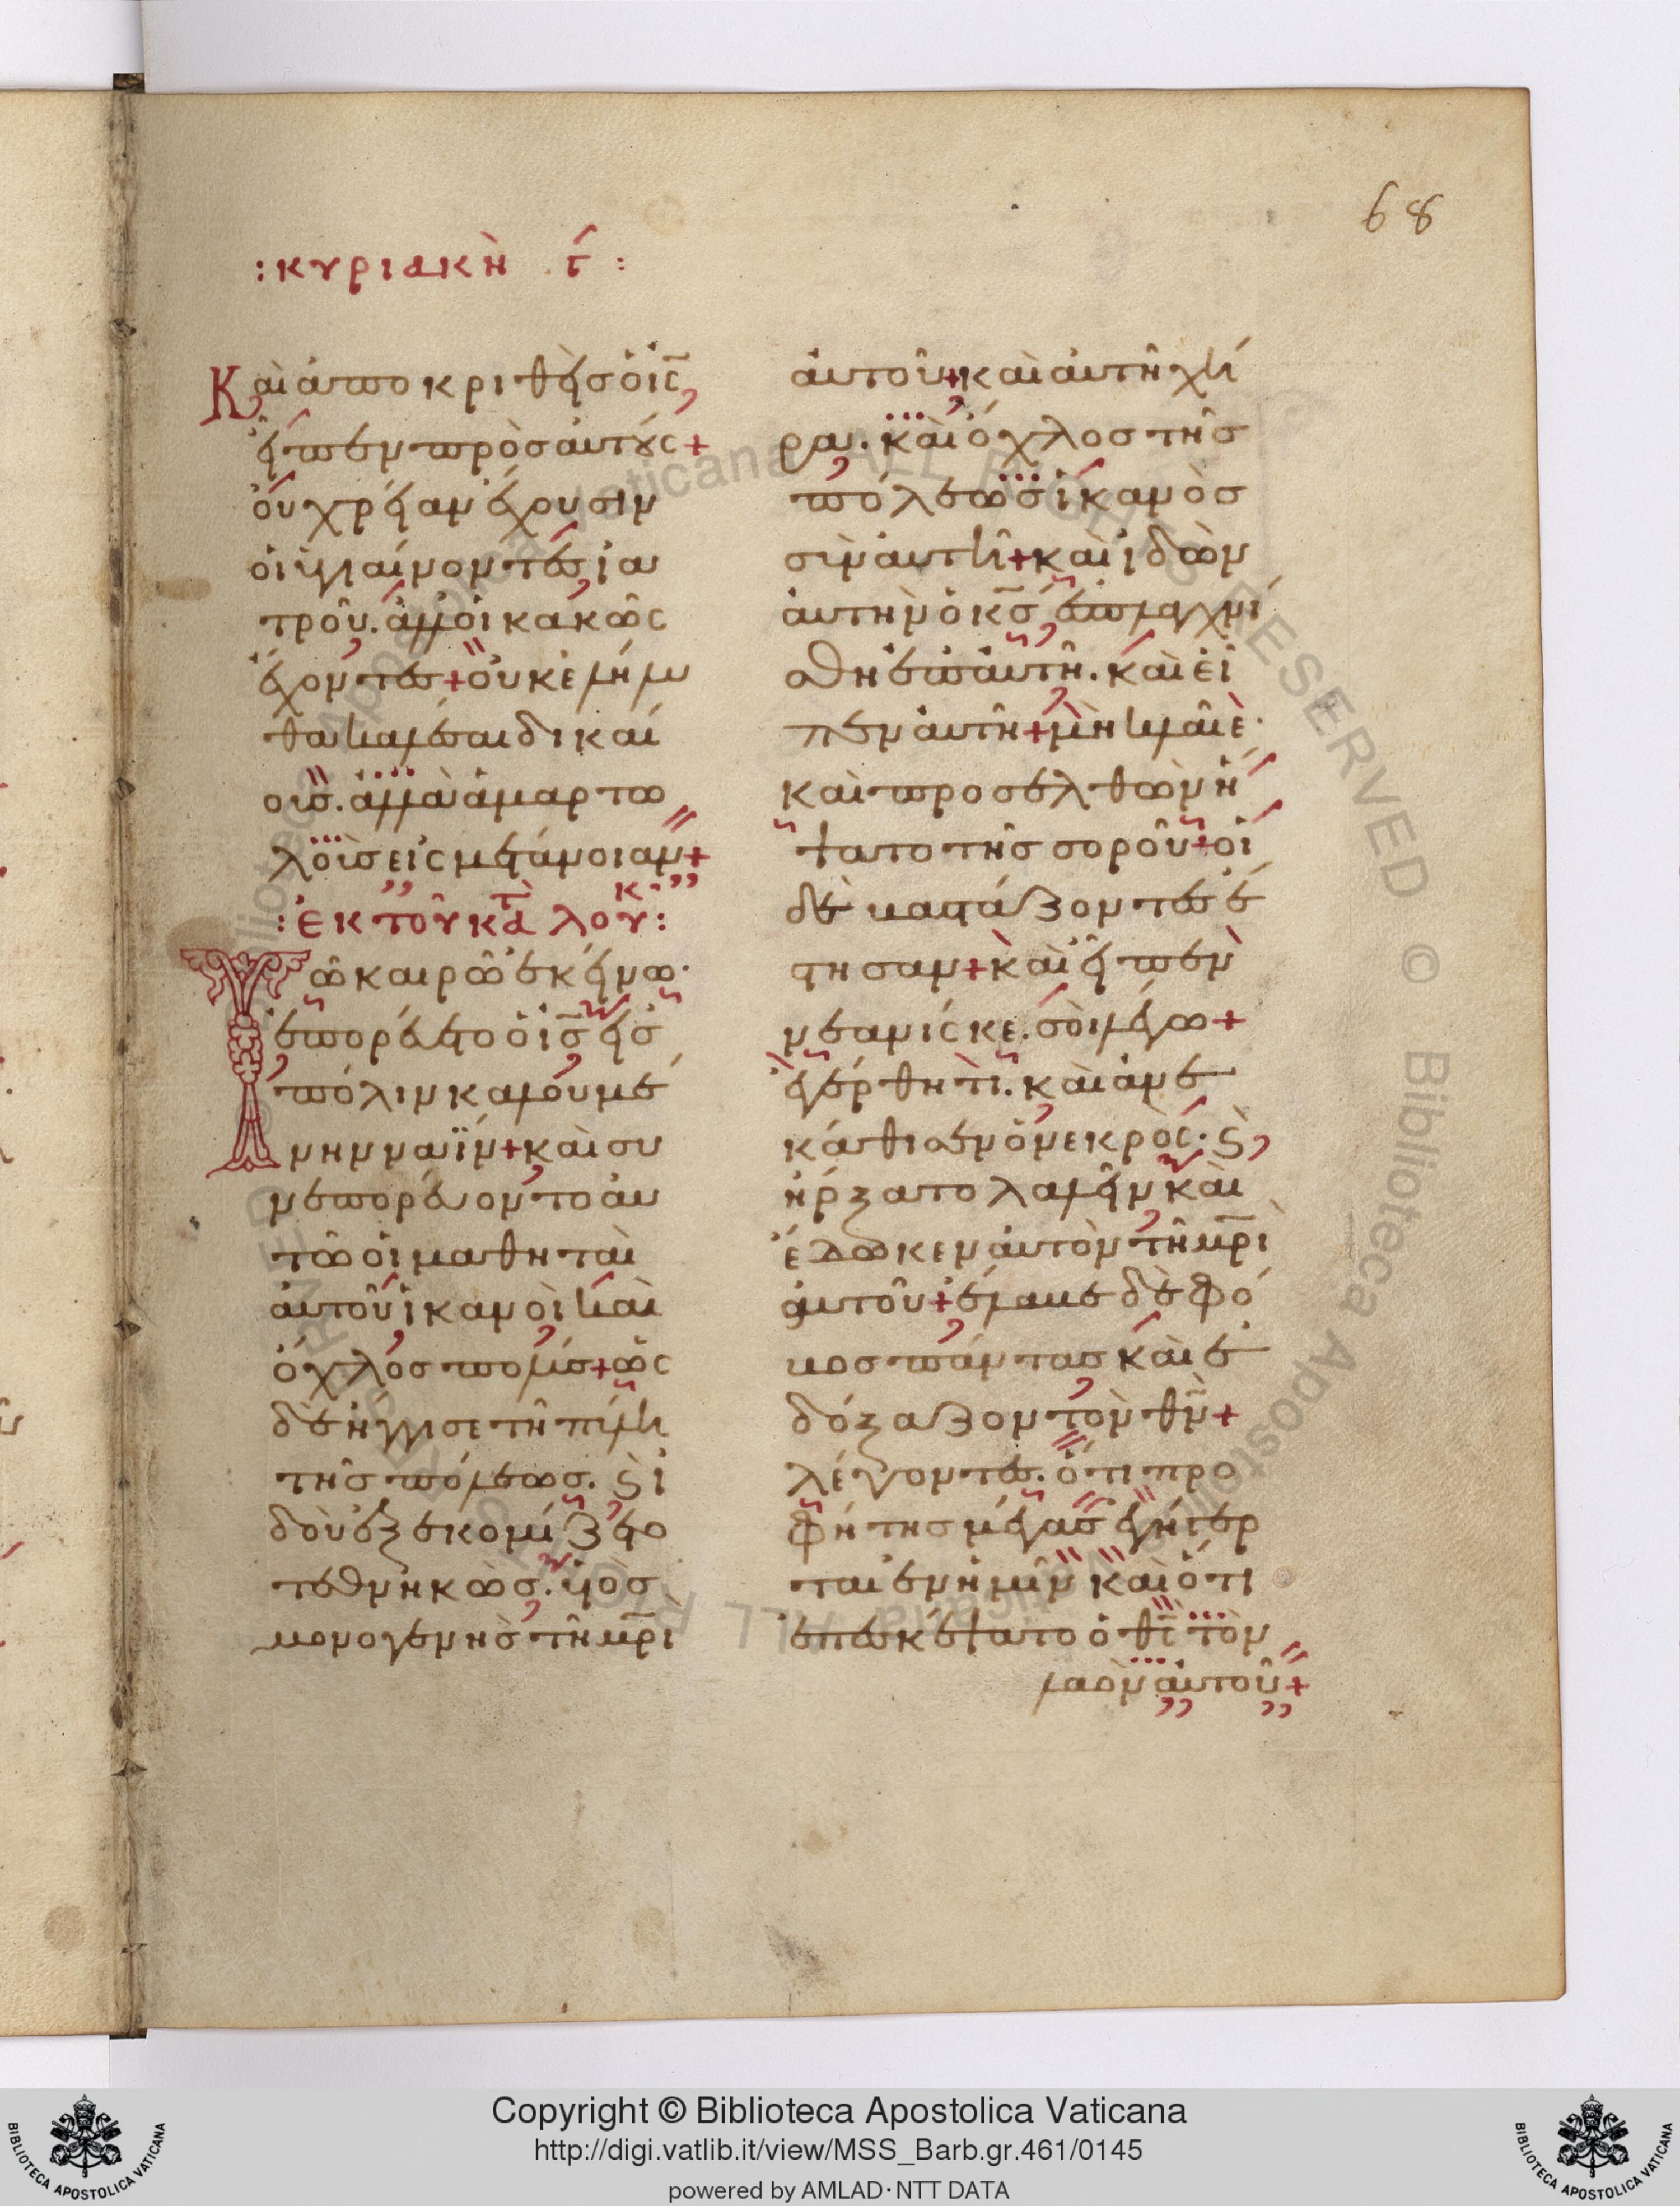 68
:κυριακὴ .γ́:
Καὶ ἀποκριθεὶς ὁ ἰς̅
εἶπεν πρὸς αὐτούς+
οὐ χρείαν ἔχουσιν
οἱ ὑγιαίνοντες ἰα
τροῦ. ἀλλ' οἱ κακῶς
ἔχοντες+ οὐκ ἐλήλυ
θα καλέσαι δικαί
ους. ἀλλὰ ἁμαρτω
λοὺς εἰς μετάνοιαν+
:ἐκ τοῦ κατὰ λου:
Τῶ καιρῶ ἐκείνω·
ἐπορεύετο ὁ ις̅ εἰς
πόλιν καλουμέ
νην ναΐν+ καὶ συ
νεπορεύοντο αὐ
τῶ οἱ μαθηταὶ
αὐτοῦ ἱκανοὶ καὶ
ὄχλος πολύς+ ὡς
δὲ ἤγγισε τῆ πύλη
τῆς πόλεως. ϗ ἰ
δοὺ ἐξεκομίζετο
τεθνηκὼς. υἱὸς
μονογενὴς τῆ μρ̅ὶ
αὐτοῦ+ καὶ αὐτὴ χή
ρα. καὶ ὄχλος τῆς
πόλεως ἱκανὸς
σὺν αὐτῆ+ καὶ ἰδὼν
αὐτὴν ὁ κς̅ ἐσπλαγχνί
σθη ἐπ' αὐτῆ. καὶ εἶ
πεν αὐτῆ+ μὴ κλαῖε·
καὶ προσελθὼν ἥ
ψατο τῆς σοροῦ+ οἱ
δὲ βαστάζοντες ἔ
στησαν+ καὶ εἶπεν
νεανίσκε. σοὶ λέγω+
ἐγέρθητι. καὶ ἀνε
κάθισεν ὁ νεκρός· ϗ
ἤρξατο λαλεῖν καὶ
ἔδωκεν αὐτὸν τῆ μρ̅ὶ
αὐτοῦ+ ἔλαβε δὲ φό
βος πάντας καὶ ἐ
δόξαζον τὸν θν̅+
λέγοντες. ὅτι προ
φήτης μέγας ἐγήγερ
ται ἐν ἡμῖν καὶ ὅτι
ἐπεσκέψατο ὁ θς̅ τὸν
λαὸν αὐτοῦ+
Copyright © Biblioteca Apostolica Vaticana
http://digi.vatlib.it/view/MSS_Barb.gr.461/0145
powered by AMLAD·NTT DATA
BIBLIOTECA APOSTOLICA VATICANA
BIBLIOTECA APOSTOLICA VATICANA